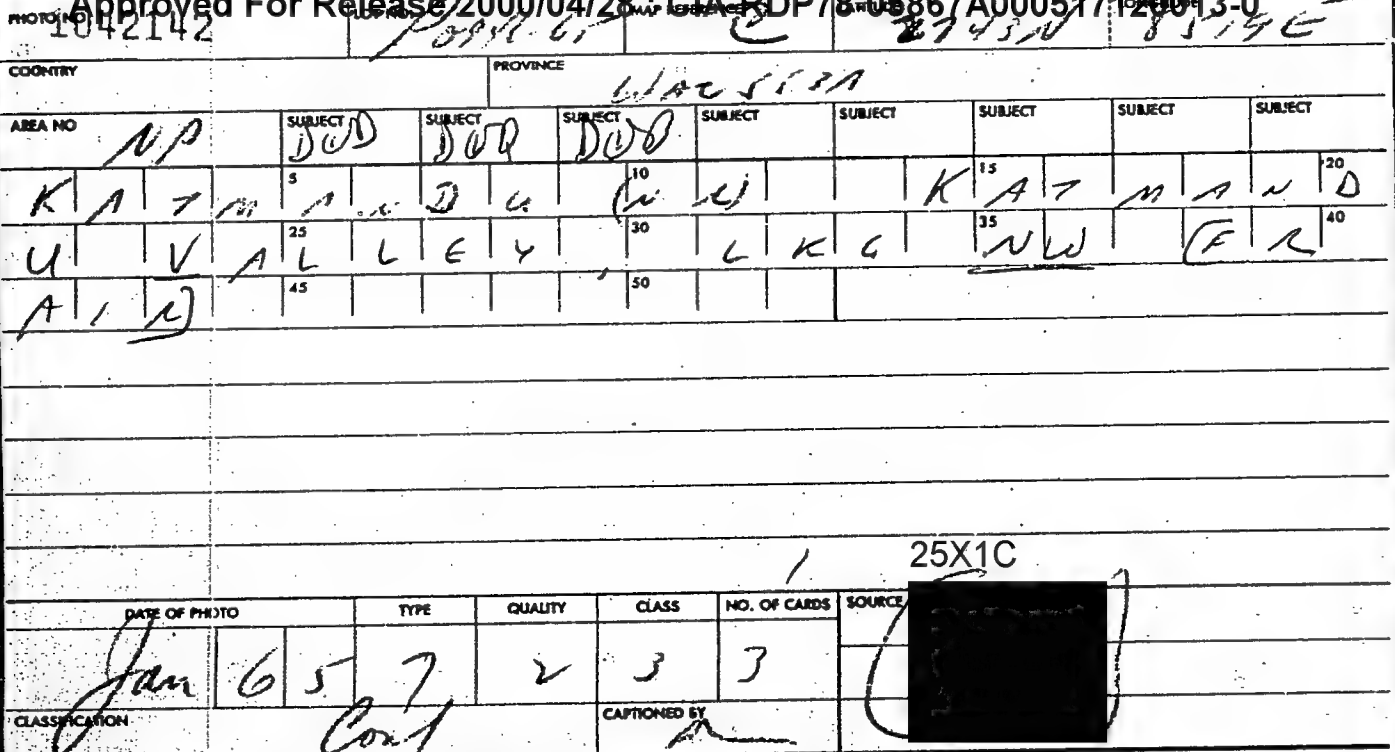 Approved For Release 2000/04/28 : CIA-RDP78-05867A000517120013-0
PHOTO NO. MAP REFERENCE
1042142 C 2743N 8519E
COUNTRY PROVINCE
AREA NO SUBJECT SUBJECT SUBJECT SUBJECT SUBJECT SUBJECT SUBJECT SUBJECT
NP
5 10 15 20
KATMANDU (NU) KATMAND
25 30 35 40
U VALLEY, LKG NW (FR
45 50
AIR)
1 25X1C
DATE OF PHOTO TYPE QUALITY CLASS NO. OF CARDS SOURCE
Jan 65 7 2 3 3
CLASSIFICATION Conf CAPTIONED BY